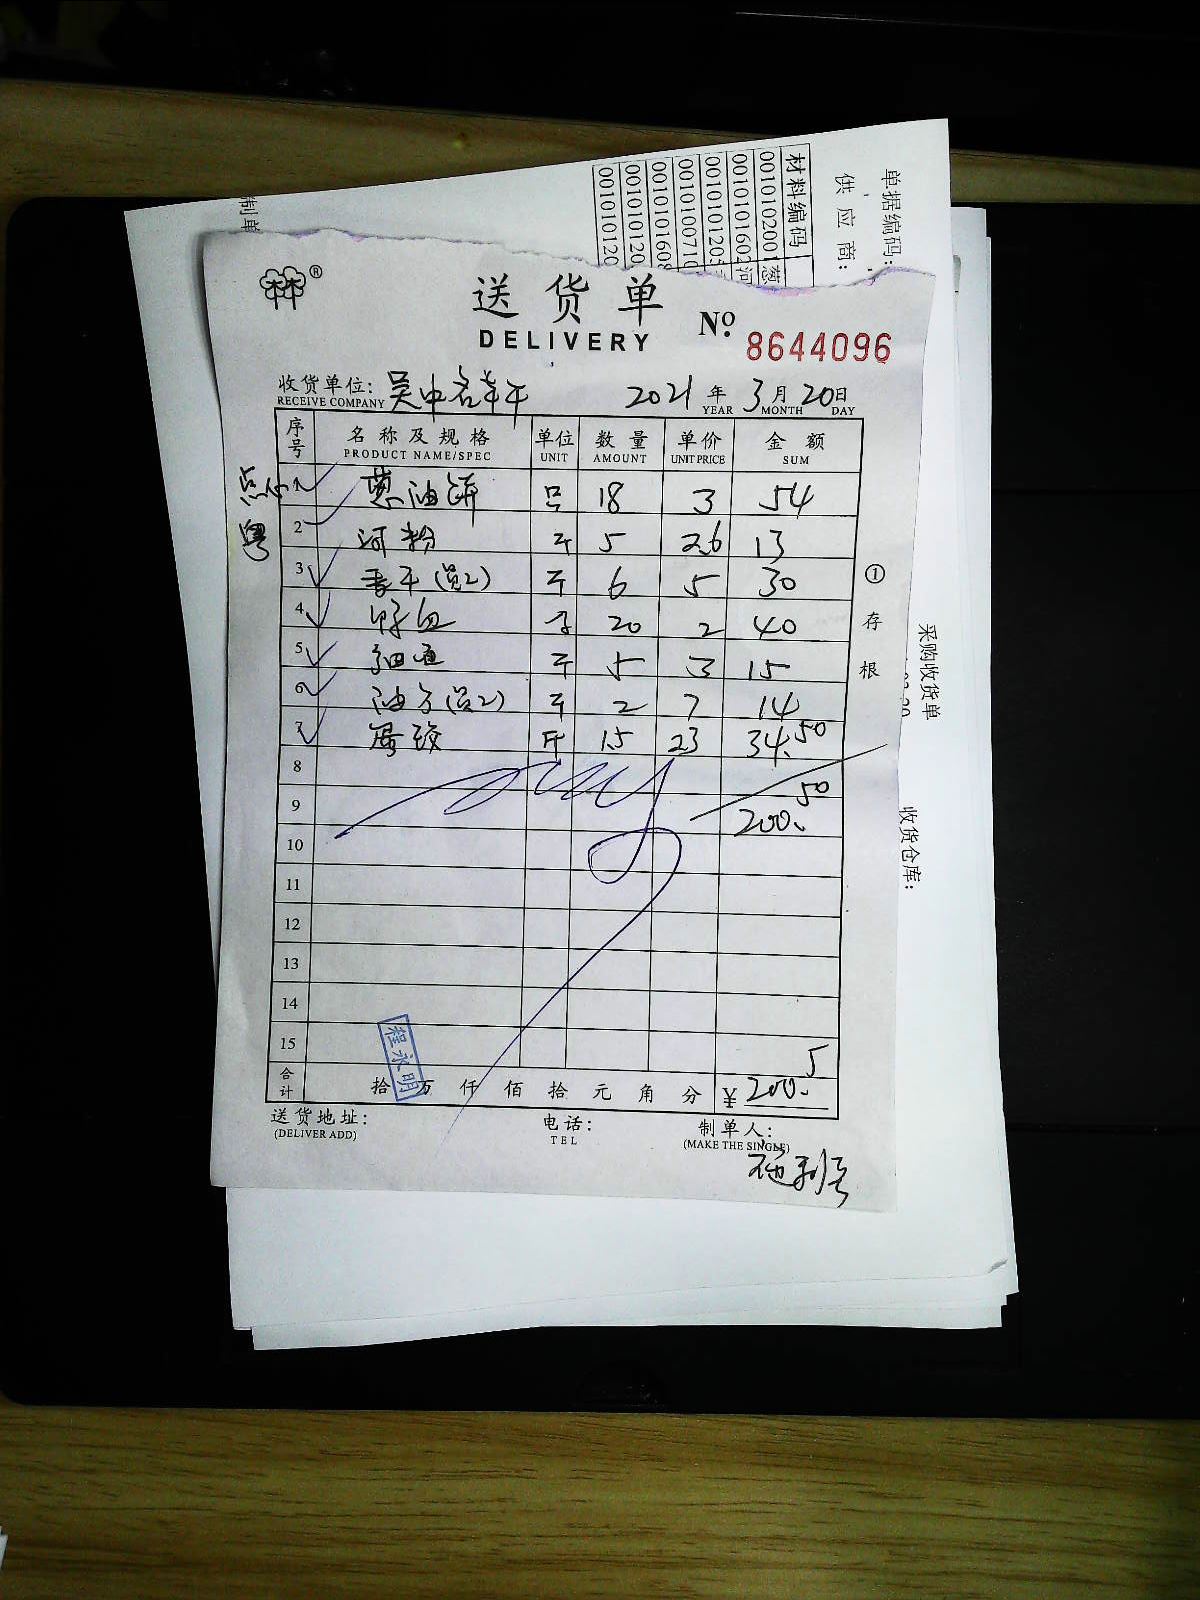 单据编码:
供应商:
材料编码
001010200
0010101602 河
001010120
001010071
0010101608
001010120
001010120
制单
®
送货单
DELIVERY
No. 8644096
收货单位: 吴中 2021年3月20日
RECEIVE COMPANY YEAR MONTH DAY
序号 名称及规格 单位 数量 单价 金额
PRODUCT NAME/SPEC UNIT AMOUNT UNIT PRICE SUM
点心 1 葱油饼 只 18 3 54
粤 2 河粉 斤 5 2.6 13
3 香干(元2) 斤 6 5 30
4 鸭血 20 2 40
5 斤 5 3 15
6 油 斤 2 7 14
7 斤 1.5 23 34.50
8
9 200.50
10
11
12
13
14
15
合计 拾万仟佰拾元角分 ¥200.5
程永明
送货地址: 电话: 制单人:
(DELIVER ADD) TEL (MAKE THE SINGLE)
①存根
采购收货单
收货仓库: